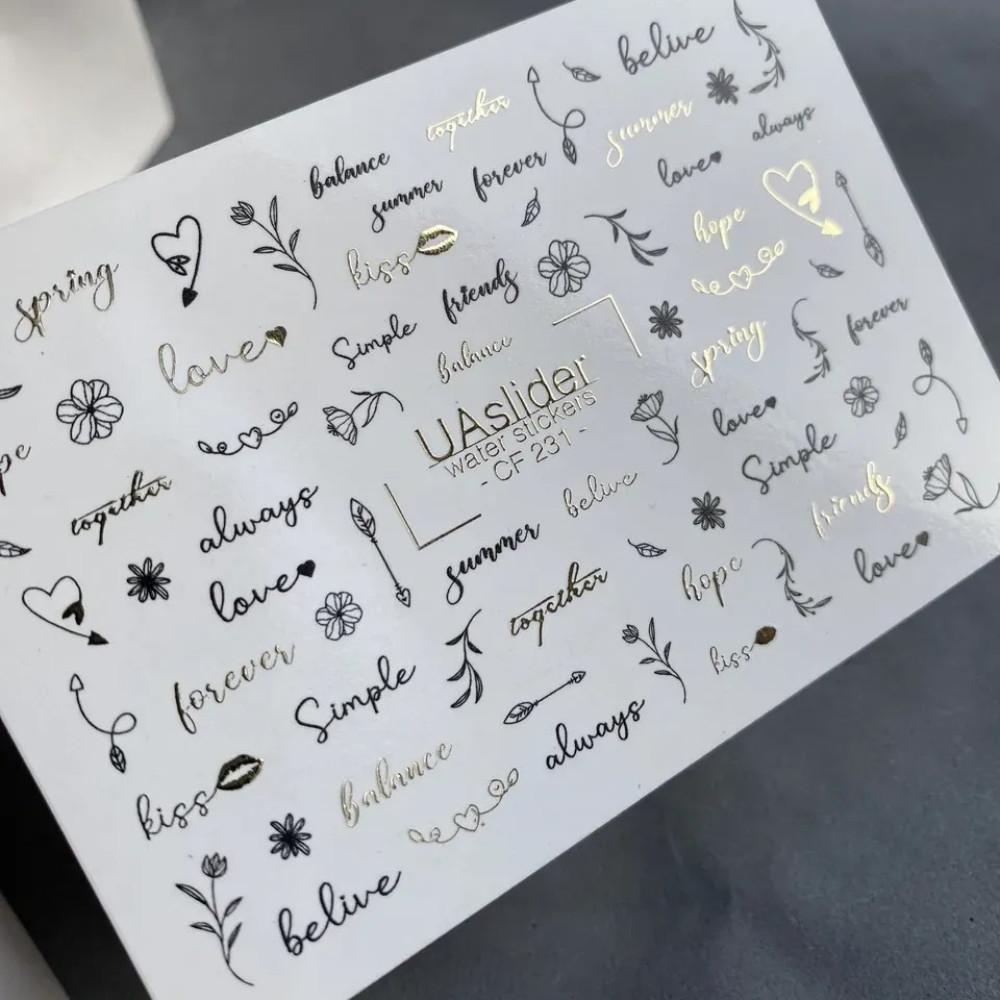 belive
together
summer
always
balance
summer
forever
love
hope
spring
kiss
friends
love
Simple
balance
spring
forever
UAslider
water stickers
- CF 231 -
love
Simple
together
always
belive
friends
summer
love
love
together
hope
forever
Simple
kiss
always
balance
kiss
belive